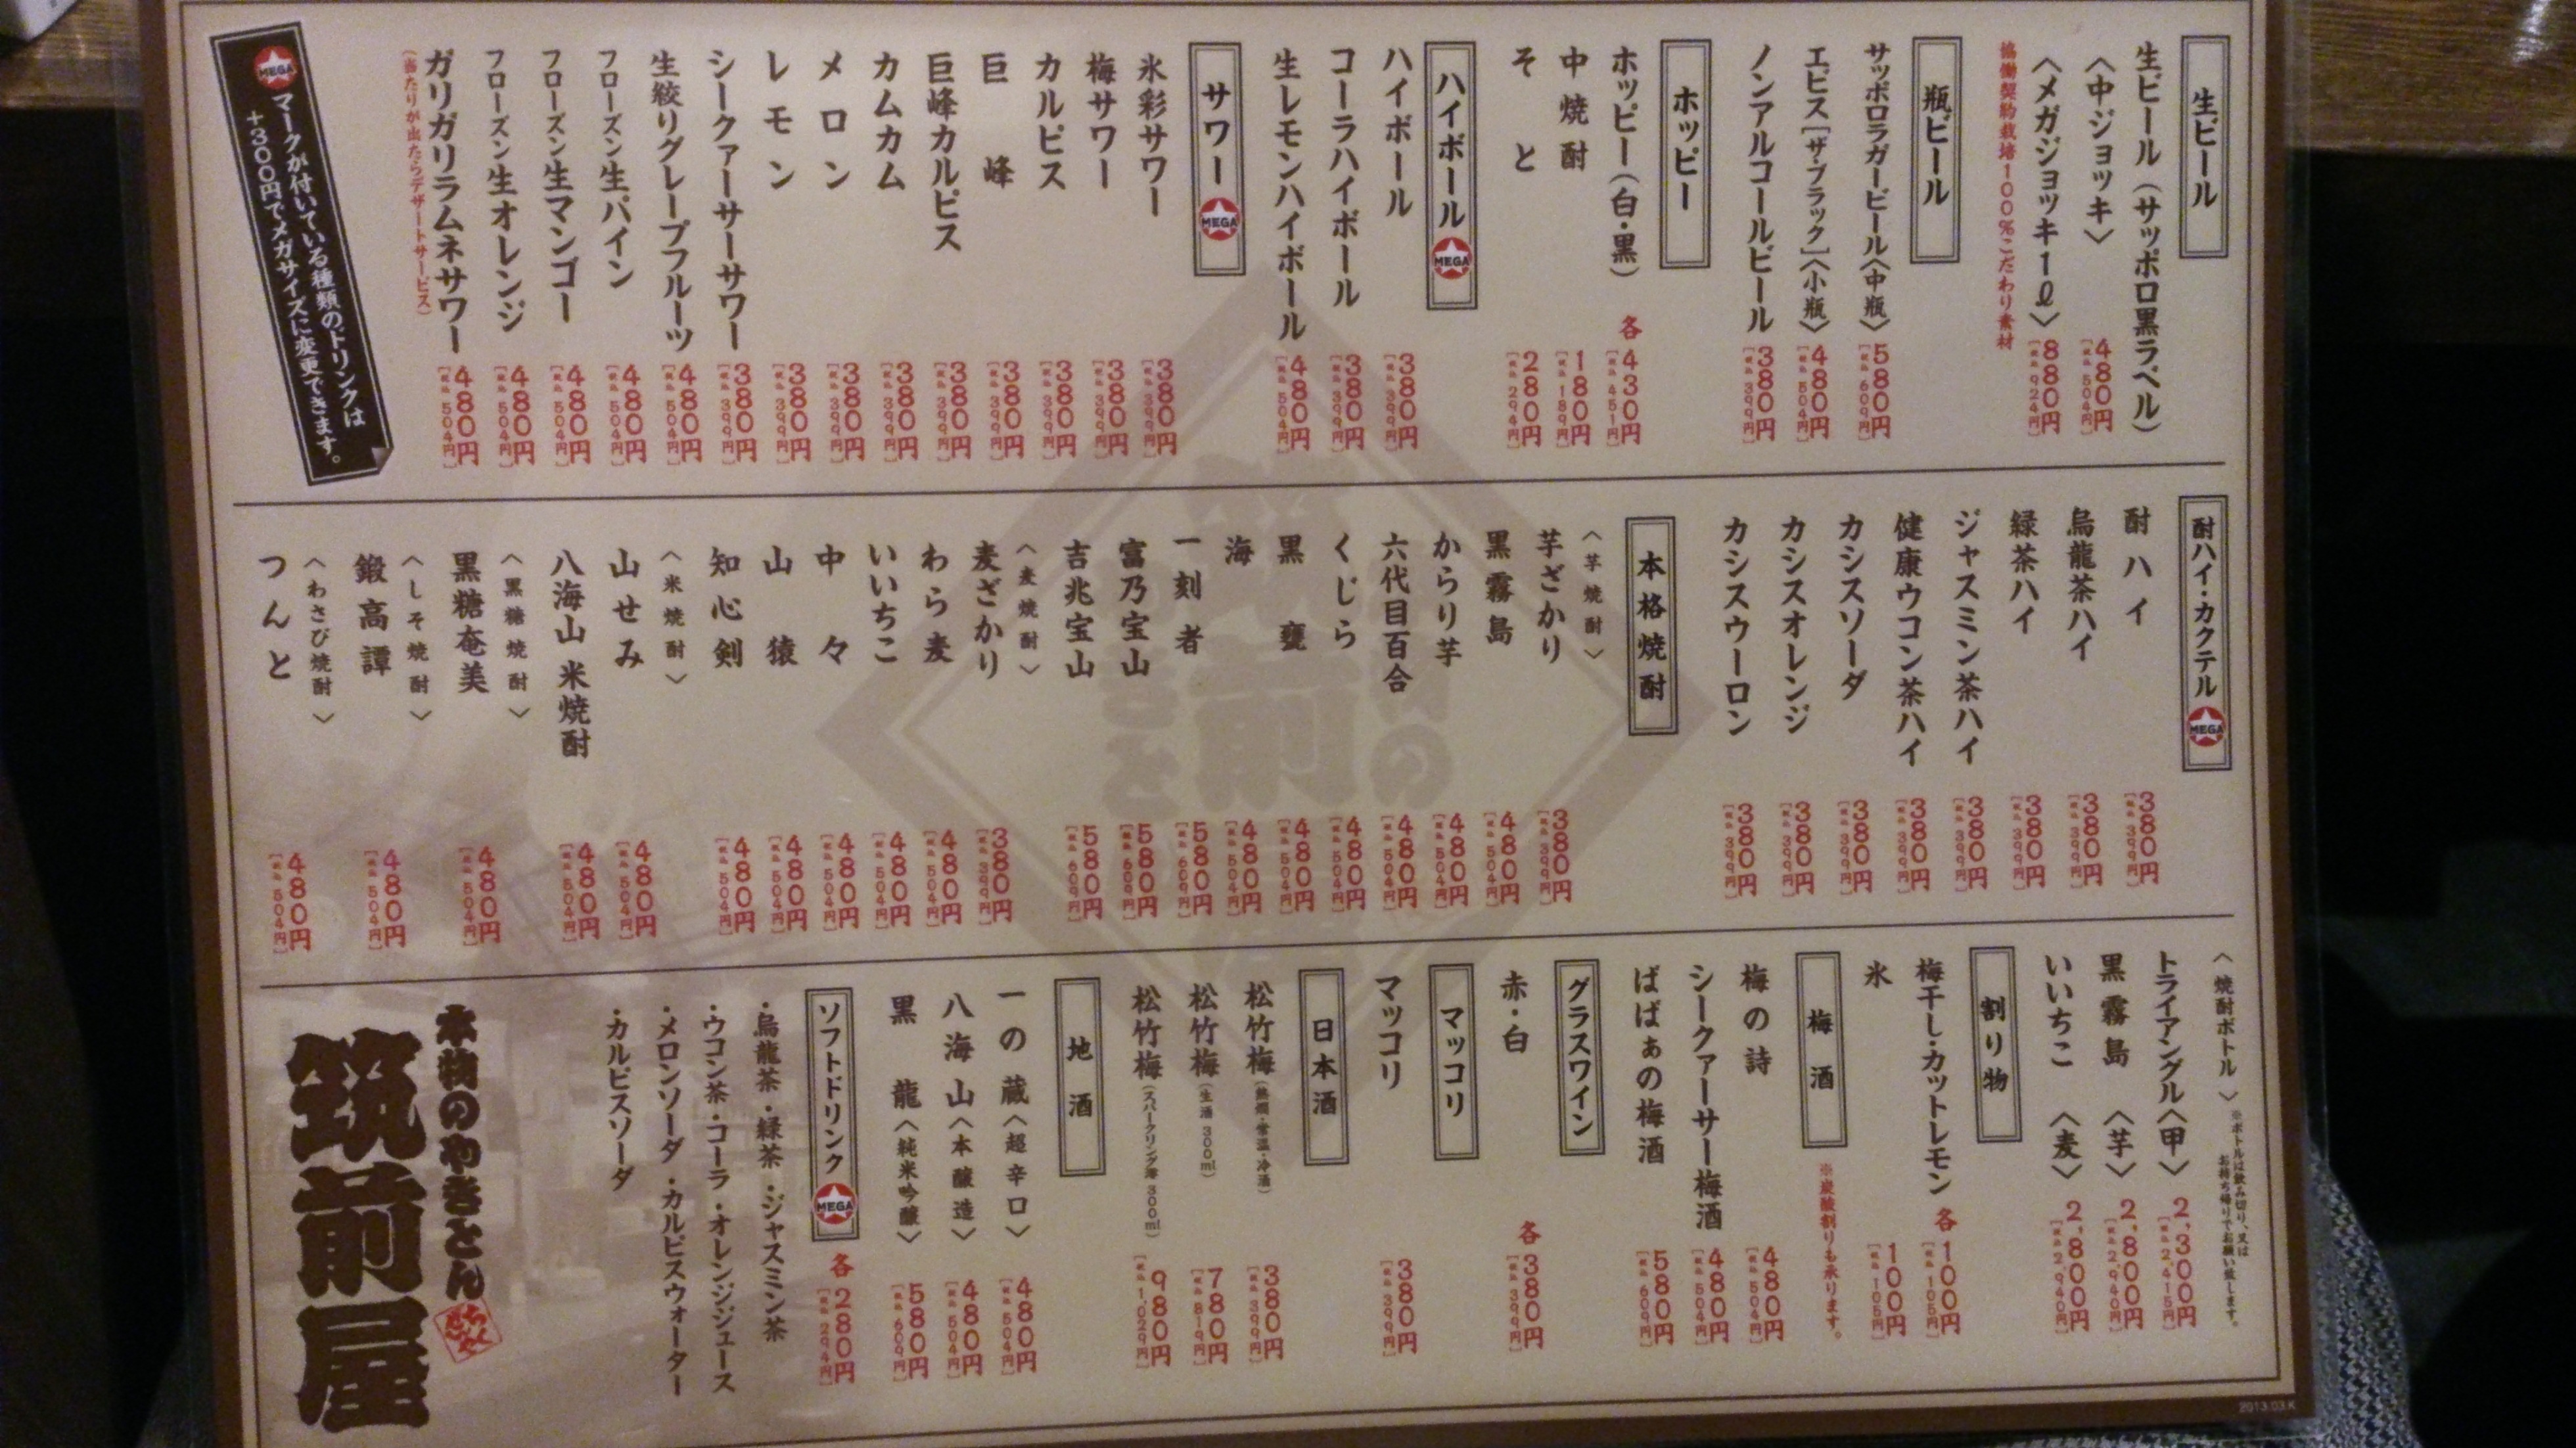 生ビール
生ビール（サッポロ黒ラベル）
〈中ジョッキ〉 480円 [税込 504円]
〈メガジョッキ1ℓ〉 880円 [税込 924円]
協働契約栽培100%こだわり素材
瓶ビール
サッポロラガービール〈中瓶〉 580円 [税込 609円]
エビス[ザ・ブラック]〈小瓶〉 480円 [税込 504円]
ノンアルコールビール 380円 [税込 399円]
ホッピー
ホッピー（白・黒） 各430円 [税込 451円]
中焼酎 180円 [税込 189円]
そと 280円 [税込 294円]
ハイボール MEGA
ハイボール 380円 [税込 399円]
コーラハイボール 380円 [税込 399円]
生レモンハイボール 480円 [税込 504円]
サワー MEGA
氷彩サワー 380円 [税込 399円]
梅サワー 380円 [税込 399円]
カルピス 380円 [税込 399円]
巨峰 380円 [税込 399円]
巨峰カルピス 380円 [税込 399円]
カムカム 380円 [税込 399円]
メロン 380円 [税込 399円]
レモン 380円 [税込 399円]
シークァーサーサワー 380円 [税込 399円]
生絞りグレープフルーツ 480円 [税込 504円]
フローズン生パイン 480円 [税込 504円]
フローズン生マンゴー 480円 [税込 504円]
フローズン生オレンジ 480円 [税込 504円]
ガリガリラムネサワー 480円 [税込 504円]
（当たりが出たらデザートサービス）
MEGA マークが付いている種類のドリンクは
+300円でメガサイズに変更できます。
酎ハイ・カクテル MEGA
酎ハイ 380円 [税込 399円]
烏龍茶ハイ 380円 [税込 399円]
緑茶ハイ 380円 [税込 399円]
ジャスミン茶ハイ 380円 [税込 399円]
健康ウコン茶ハイ 380円 [税込 399円]
カシスソーダ 380円 [税込 399円]
カシスオレンジ 380円 [税込 399円]
カシスウーロン 380円 [税込 399円]
本格焼酎
〈芋焼酎〉
芋ざかり 380円 [税込 399円]
黒霧島 480円 [税込 504円]
からり芋 480円 [税込 504円]
六代目百合 480円 [税込 504円]
くじら 480円 [税込 504円]
黒甕 480円 [税込 504円]
海 480円 [税込 504円]
一刻者 580円 [税込 609円]
富乃宝山 580円 [税込 609円]
吉兆宝山 580円 [税込 609円]
〈麦焼酎〉
麦ざかり 380円 [税込 399円]
わら麦 480円 [税込 504円]
いいちこ 480円 [税込 504円]
中々 480円 [税込 504円]
山猿 480円 [税込 504円]
知心剣 480円 [税込 504円]
〈米焼酎〉
山せみ 480円 [税込 504円]
八海山 米焼酎 480円 [税込 504円]
〈黒糖焼酎〉
黒糖奄美 480円 [税込 504円]
〈しそ焼酎〉
鍛高譚 480円 [税込 504円]
〈わさび焼酎〉
つんと 480円 [税込 504円]
〈焼酎ボトル〉 ※ボトルは飲み切り、又は
お持ち帰りでお願い致します。
トライアングル〈甲〉 2,300円 [税込 2,415円]
黒霧島〈芋〉 2,800円 [税込 2,940円]
いいちこ〈麦〉 2,800円 [税込 2,940円]
割り物
梅干し・カットレモン 各100円 [税込 105円]
氷 100円 [税込 105円]
梅酒 ※炭酸割りも承ります。
梅の詩 480円 [税込 504円]
シークァーサー梅酒 480円 [税込 504円]
ばばぁの梅酒 580円 [税込 609円]
グラスワイン
赤・白 各380円 [税込 399円]
マッコリ
マッコリ 380円 [税込 399円]
日本酒
松竹梅（熱燗・常温・冷酒） 380円 [税込 399円]
松竹梅（生酒 300ml） 780円 [税込 819円]
松竹梅（スパークリング澪 300ml） 980円 [税込 1,029円]
地酒
一の蔵〈超辛口〉 480円 [税込 504円]
八海山〈本醸造〉 480円 [税込 504円]
黒龍〈純米吟醸〉 580円 [税込 609円]
ソフトドリンク MEGA 各280円 [税込 294円]
・烏龍茶・緑茶・ジャスミン茶
・ウコン茶・コーラ・オレンジジュース
・メロンソーダ・カルピスウォーター
・カルピスソーダ
本物のやきとん
筑前屋
2013.03.K